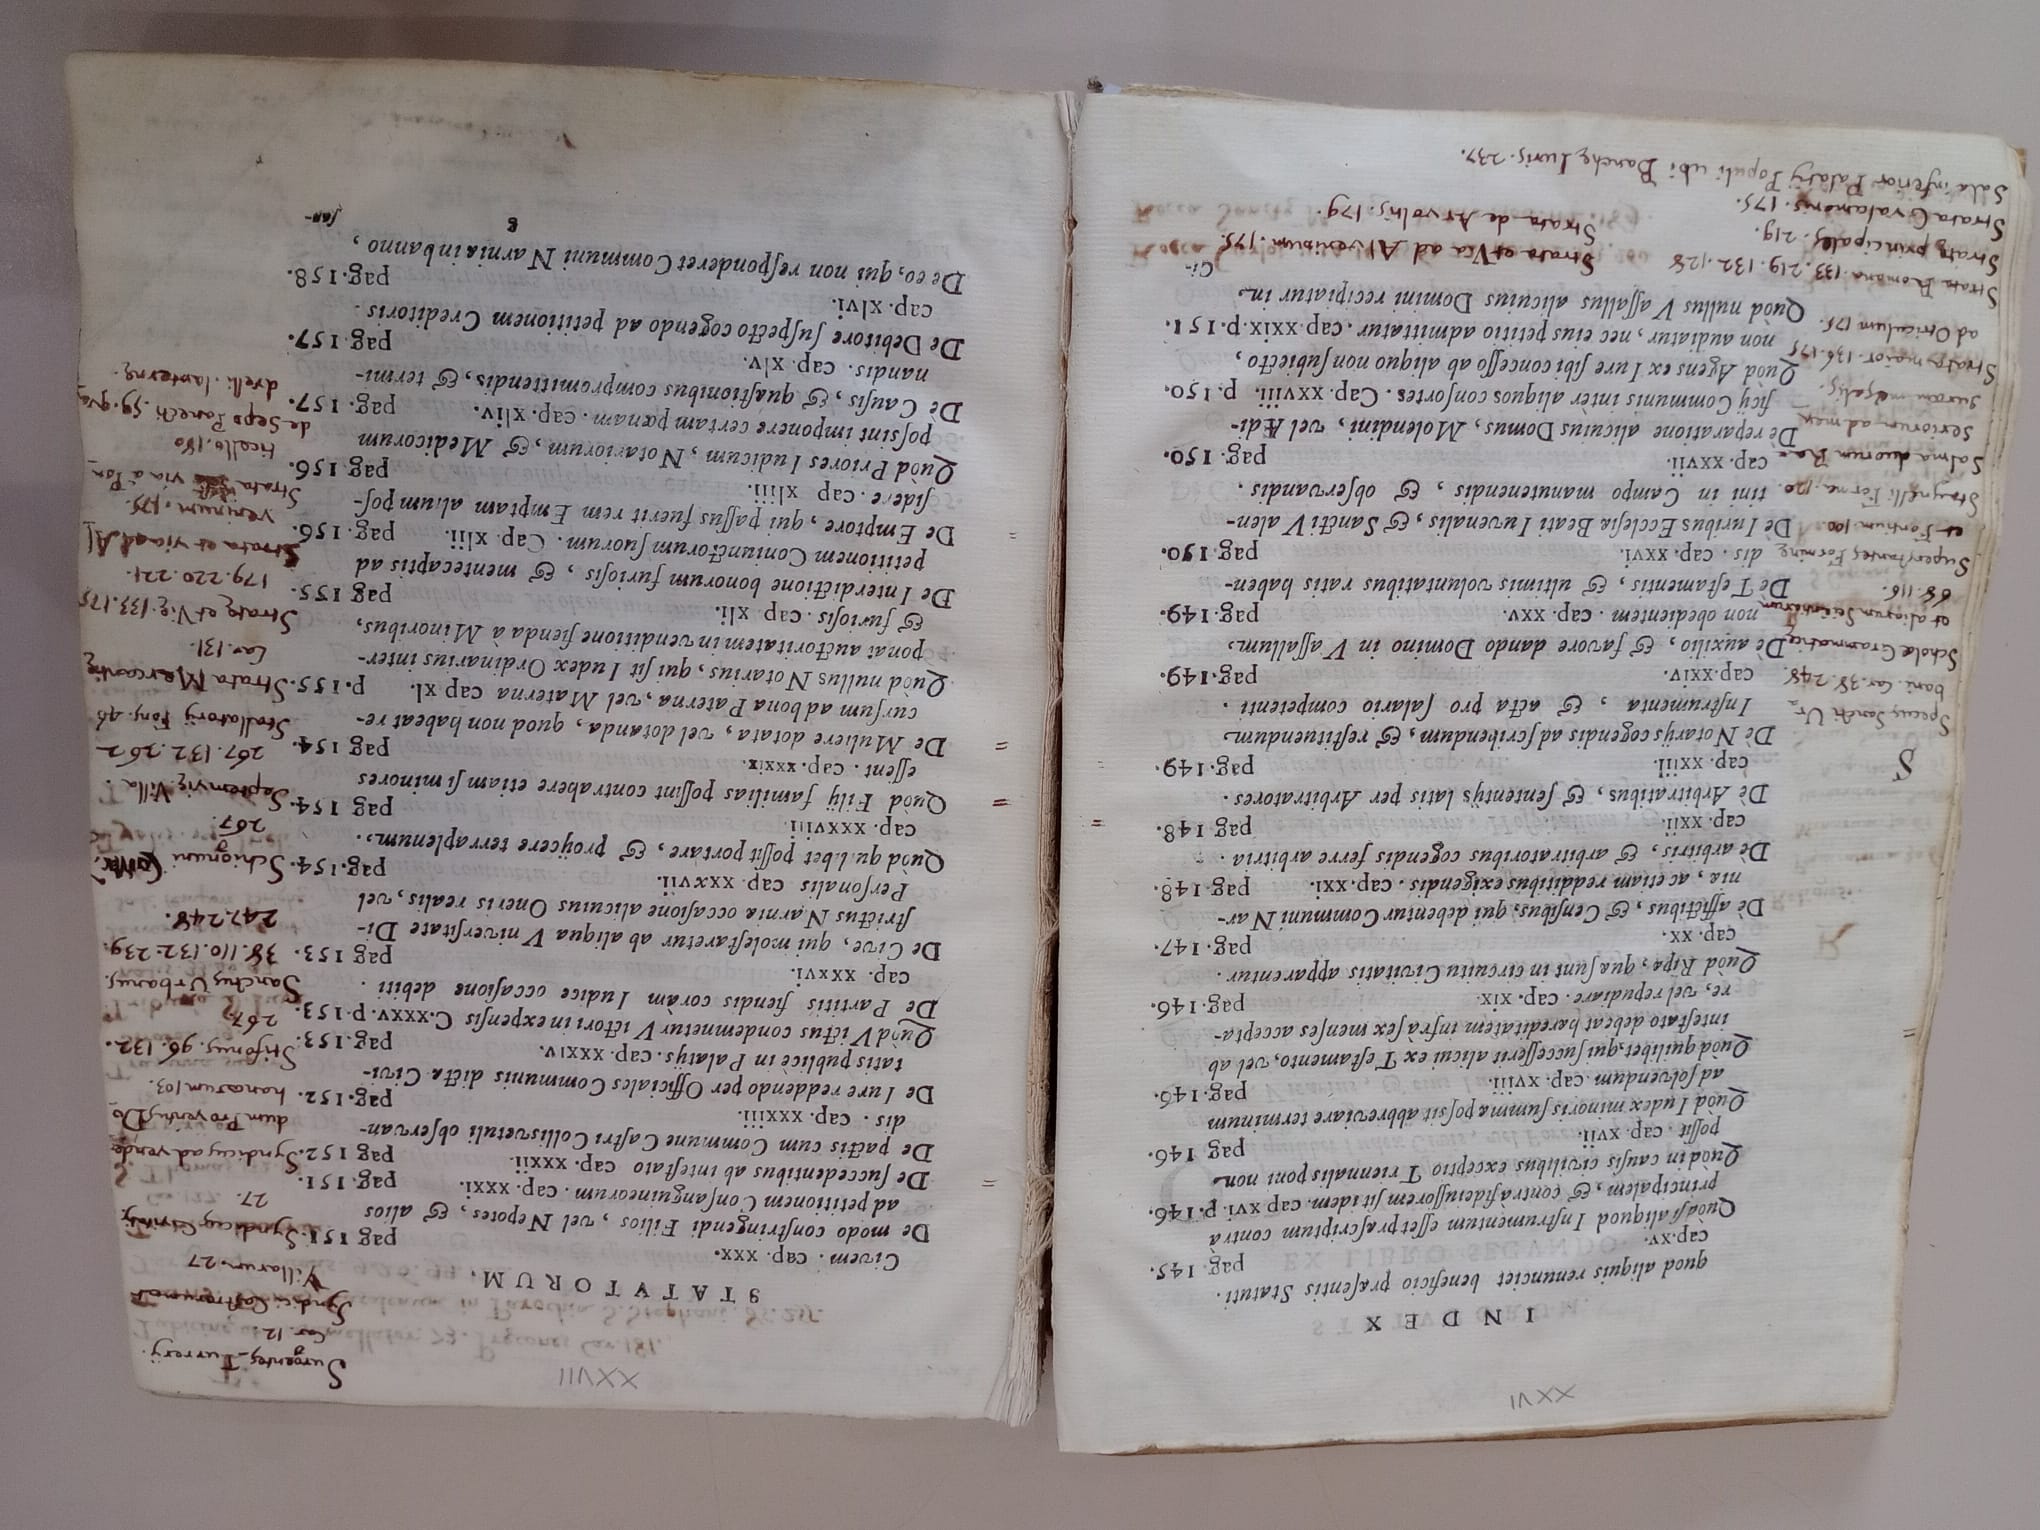 XXVI
INDEX
quod aliquis renunciet beneficio præsentis Statuti.
cap.xv. pag.145.
Quòd si aliquod Instrumentum esset præscriptum contra
principalem, & contra fideiussorem sit idem. cap. xvi. p.146.
Quòd in causis civilibus exceptio Triennalis poni non
possit. cap. xvii. pag 146.
Quòd Iudex minoris summa possit abbreviare terminum
ad solvendum. cap. xviii. pag.146.
Quòd quilibet, qui successerit alicui ex Testamento, vel ab
intestato debeat hæreditatem infrà sex menses accepta-
re, vel repudiare. cap. xix. pag.146.
Quòd Ripæ, quæ sunt in circuitu Civitatis apparentur.
cap. xx. pag.147.
Dè affictibus, & Censibus, qui debentur Communi Nar-
niæ, ac etiam redditibus exigendis. cap.xxi. pag.148.
Dè arbitris, & arbitratoribus cogendis ferre arbitria.
cap. xxii. pag.148.
Dè Arbitratibus, & sententijs latis per Arbitratores.
cap. xxiii. pag.149.
Dè Notarijs cogendis ad scribendum, & restituendum
Instrumenta, & acta pro salario competenti.
cap.xxiv. pag.149.
Dè auxilio, & favore dando Domino in Vassallum
non obedientem. cap. xxv. pag.149.
De Testamentis, & ultimis voluntatibus ratis haben-
dis. cap. xxvi. pag.150.
Dè Iuribus Ecclesiæ Beati Iuvenalis, & Sancti Valen-
tini in Campo manutenendis, & observandis.
cap. xxvii. pag.150.
De reparatione alicuius Domus, Molendini, vel Ædi-
ficij Communis intèr aliquos consortes. Cap. xxviii. p.150.
Quòd Agens ex Iure sibi concesso ab aliquo non subiecto,
non audiatur, nec eius petitio admittatur. cap.xxix.p.151.
Quòd nullus Vassallus alicuius Domini recipiatur in
Ci-
S
Specus Sancti Ur-
bani. Car.38.248.
Scholæ Grammaticæ
et aliarum Scientiarum
68.116.
Superstantes Formæ
et Fontium 100
Stagnelli Formæ.120.
Salma duorum Ra-
seriorum ad men-
suram
Strata maior. 136.175
ad Otriculum 175.
Strata Romana.133.219.132.128
Stratæ principales.219.
Strata Cavalameris.175.
Strata et Via ad Alverinum.175.
Strata de Arvolis.179.
Sala inferior Palatij Populi ubi Banche Iuris.237.
XXVII
STATUTORUM.
Civem. cap. xxx. pag 151.
De modo constringendi Filios, vel Nepotes, & alios
ad petitionem Consanguineorum. cap. xxxi. pag.151.
De succedentibus ab intestato cap. xxxii. pag 152.
De pactis cum Commune Castri Collisvetuli observan-
dis. cap. xxxiii. pag.152.
De Iure reddendo per Officiales Communis dictæ Civi-
tatis publicè in Palatijs. cap. xxxiv. pag.153.
Quòd Victus condemnetur Victori in expensis C.xxxv.p.153.
De Partitis fiendis coràm Iudice occasione debiti.
cap. xxxvi. pag 153.
De Cive, qui molestaretur ab aliqua Universitate Di-
strictus Narniæ occasione alicuius Oneris realis, vel
Personalis cap. xxxvii. pag.154.
Quòd quilibet possit portare, & proijcere terraplenum.
cap. xxxviii. pag 154.
Quòd Filij familias possint contrahere etiam si minores
essent. cap. xxxix. pag 154.
De Muliere dotata, vel dotanda, quod non habeat re-
cursum ad bona Paterna, vel Materna cap xl. p.155.
Quòd nullus Notarius, qui sit Iudex Ordinarius inter-
ponat auctoritatem in venditione fienda à Minoribus,
& furiosis. cap. xli. pag.155.
De Interdictione bonorum furiosis, & mentecaptis ad
petitionem Coniunctorum suorum. Cap. xlii. pag.156.
De Emptore, qui passus fuerit rem Emptam alium pos-
sidere. cap xliii. pag 156.
Quòd Priores Iudicum, Notariorum, & Medicorum
possint imponere certam pœnam. cap. xliv. pag. 157.
De Causis, & quæstionibus compromittendis, & termi-
nandis. cap. xlv. pag.157.
De Debitore suspecto cogendo ad petitionem Creditoris.
cap. xlvi. pag.158.
De eo, qui non responderet Communi Narniæ in banno,
g
Surgentes Turres.
Car. 12
Syndici Castrorum et
Villarum. 27
Syndicus
27.
Syndicus ad vende-
dum Proventus Do-
hanarum 103.
Stifonus. 96. 132.
267.
Sanctus Urbanus.
38.110.132.239.
247.248.
Schignani
267.
Septemvijs Villa
267.132.262
Stallatorij Fori. 46
Strata Mercantiæ
Car. 131.
Stratæ et Viæ. 133.175
179.220.221.
Strata et via ad Al-
verinum. 175.
Strata via à Pon-
ticello. 180